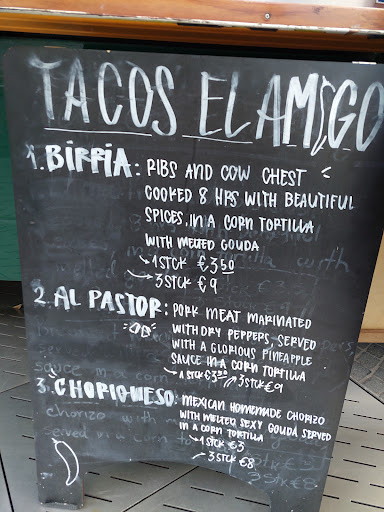 TACOS EL AMIGO
1. BIRRIA: RIBS AND COW CHEST
COOKED 8 HRS WITH BEAUTIFUL
SPICES, IN A CORN TORTILLA
WITH MELTED GOUDA
→ 1 STCK €3,50
→ 3 STCK €9
2. AL PASTOR: PORK MEAT MARINATED
WITH DRY PEPPERS, SERVED
WITH A GLORIOUS PINEAPPLE
SAUCE IN A CORN TORTILLA
→ 1 STCK €3,50 → 3 STCK €9
3. CHORIQUESO: MEXICAN HOMEMADE CHORIZO
WITH MELTED SEXY GOUDA SERVED
IN A CORN TORTILLA
→ 1 STCK €3
→ 3 STCK €8